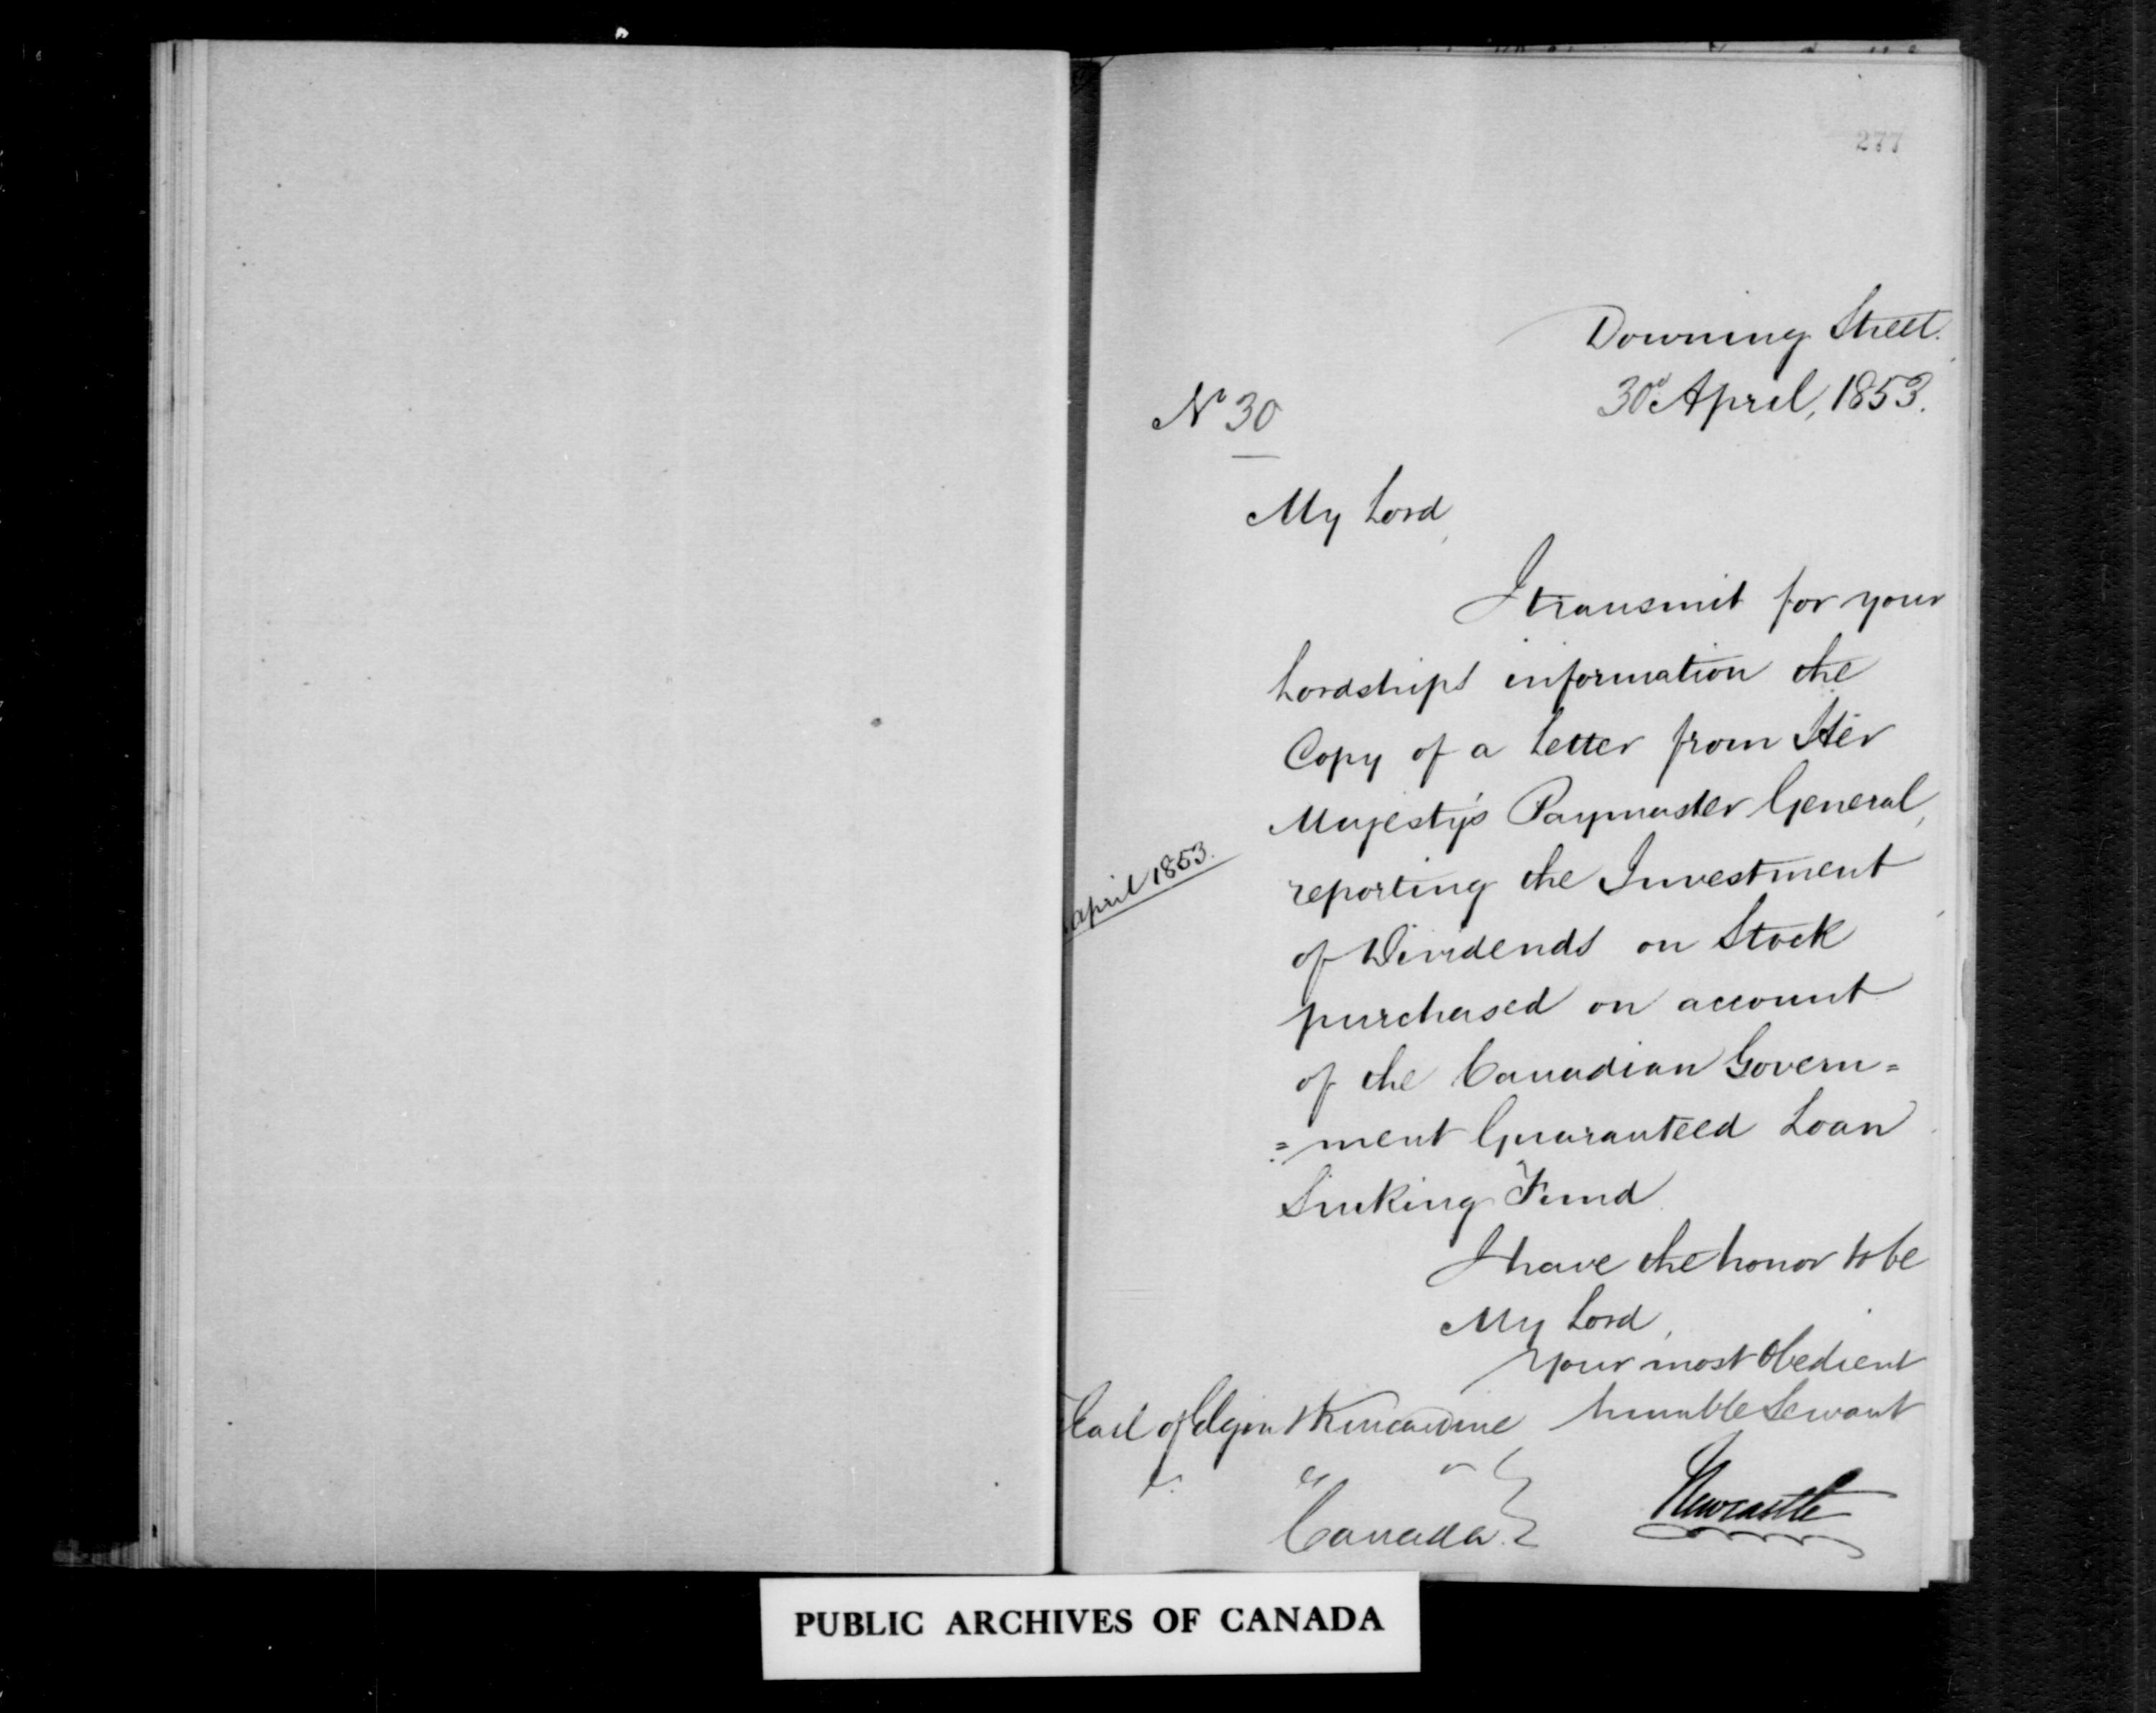 277
Downing Street.
30th April, 1853.
No 30
My Lord,
I transmit for your
Lordships information the
Copy of a Letter from Her
Majesty's Paymaster General,
april 1853.
reporting the Investment
of Dividends on Stock
purchased on account
of the Canadian Govern=
=ment Guaranteed Loan
Sinking Fund
I have the honor to be
My Lord,
Your most Obedient
humble Servant
Earl of Elgin & Kincardine
Canada.
Newcastle
PUBLIC ARCHIVES OF CANADA